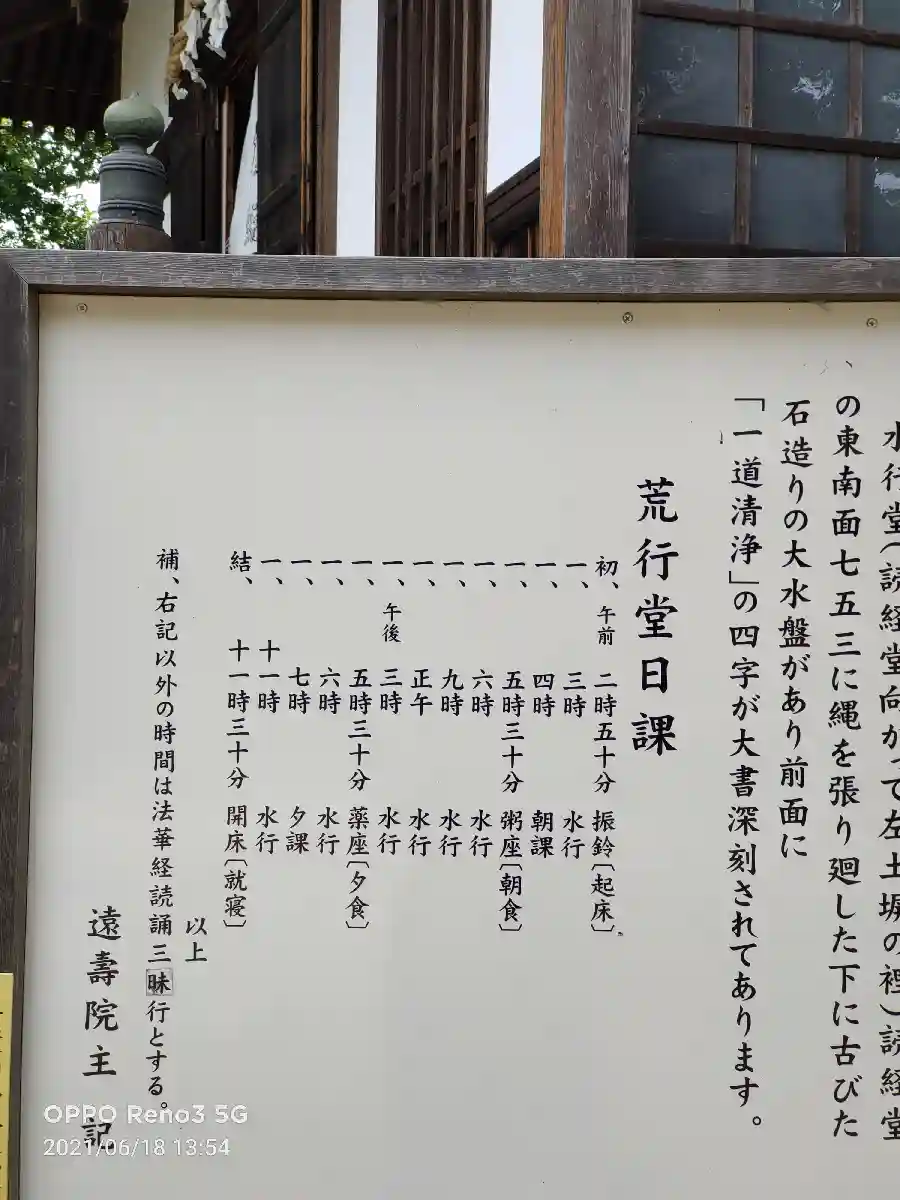 水行堂(読経堂向かって左土塀の裡)読経堂
の東南面七五三に縄を張り廻した下に古びた
石造りの大水盤があり前面に
「一道清浄」の四字が大書深刻されてあります。
荒行堂日課
初、午前 二時五十分 振鈴〔起床〕
一、 三時 水行
一、 四時 朝課
一、 五時三十分 粥座〔朝食〕
一、 六時 水行
一、 九時 水行
一、 正午 水行
一、午後 三時 水行
一、 五時三十分 薬座〔夕食〕
一、 六時 水行
一、 七時 夕課
一、 十一時 水行
結、 十一時三十分 開床〔就寝〕
以上
補、右記以外の時間は法華経読誦三昧行とする。
遠壽院主 記
OPPO Reno3 5G
2021/06/18 13:54